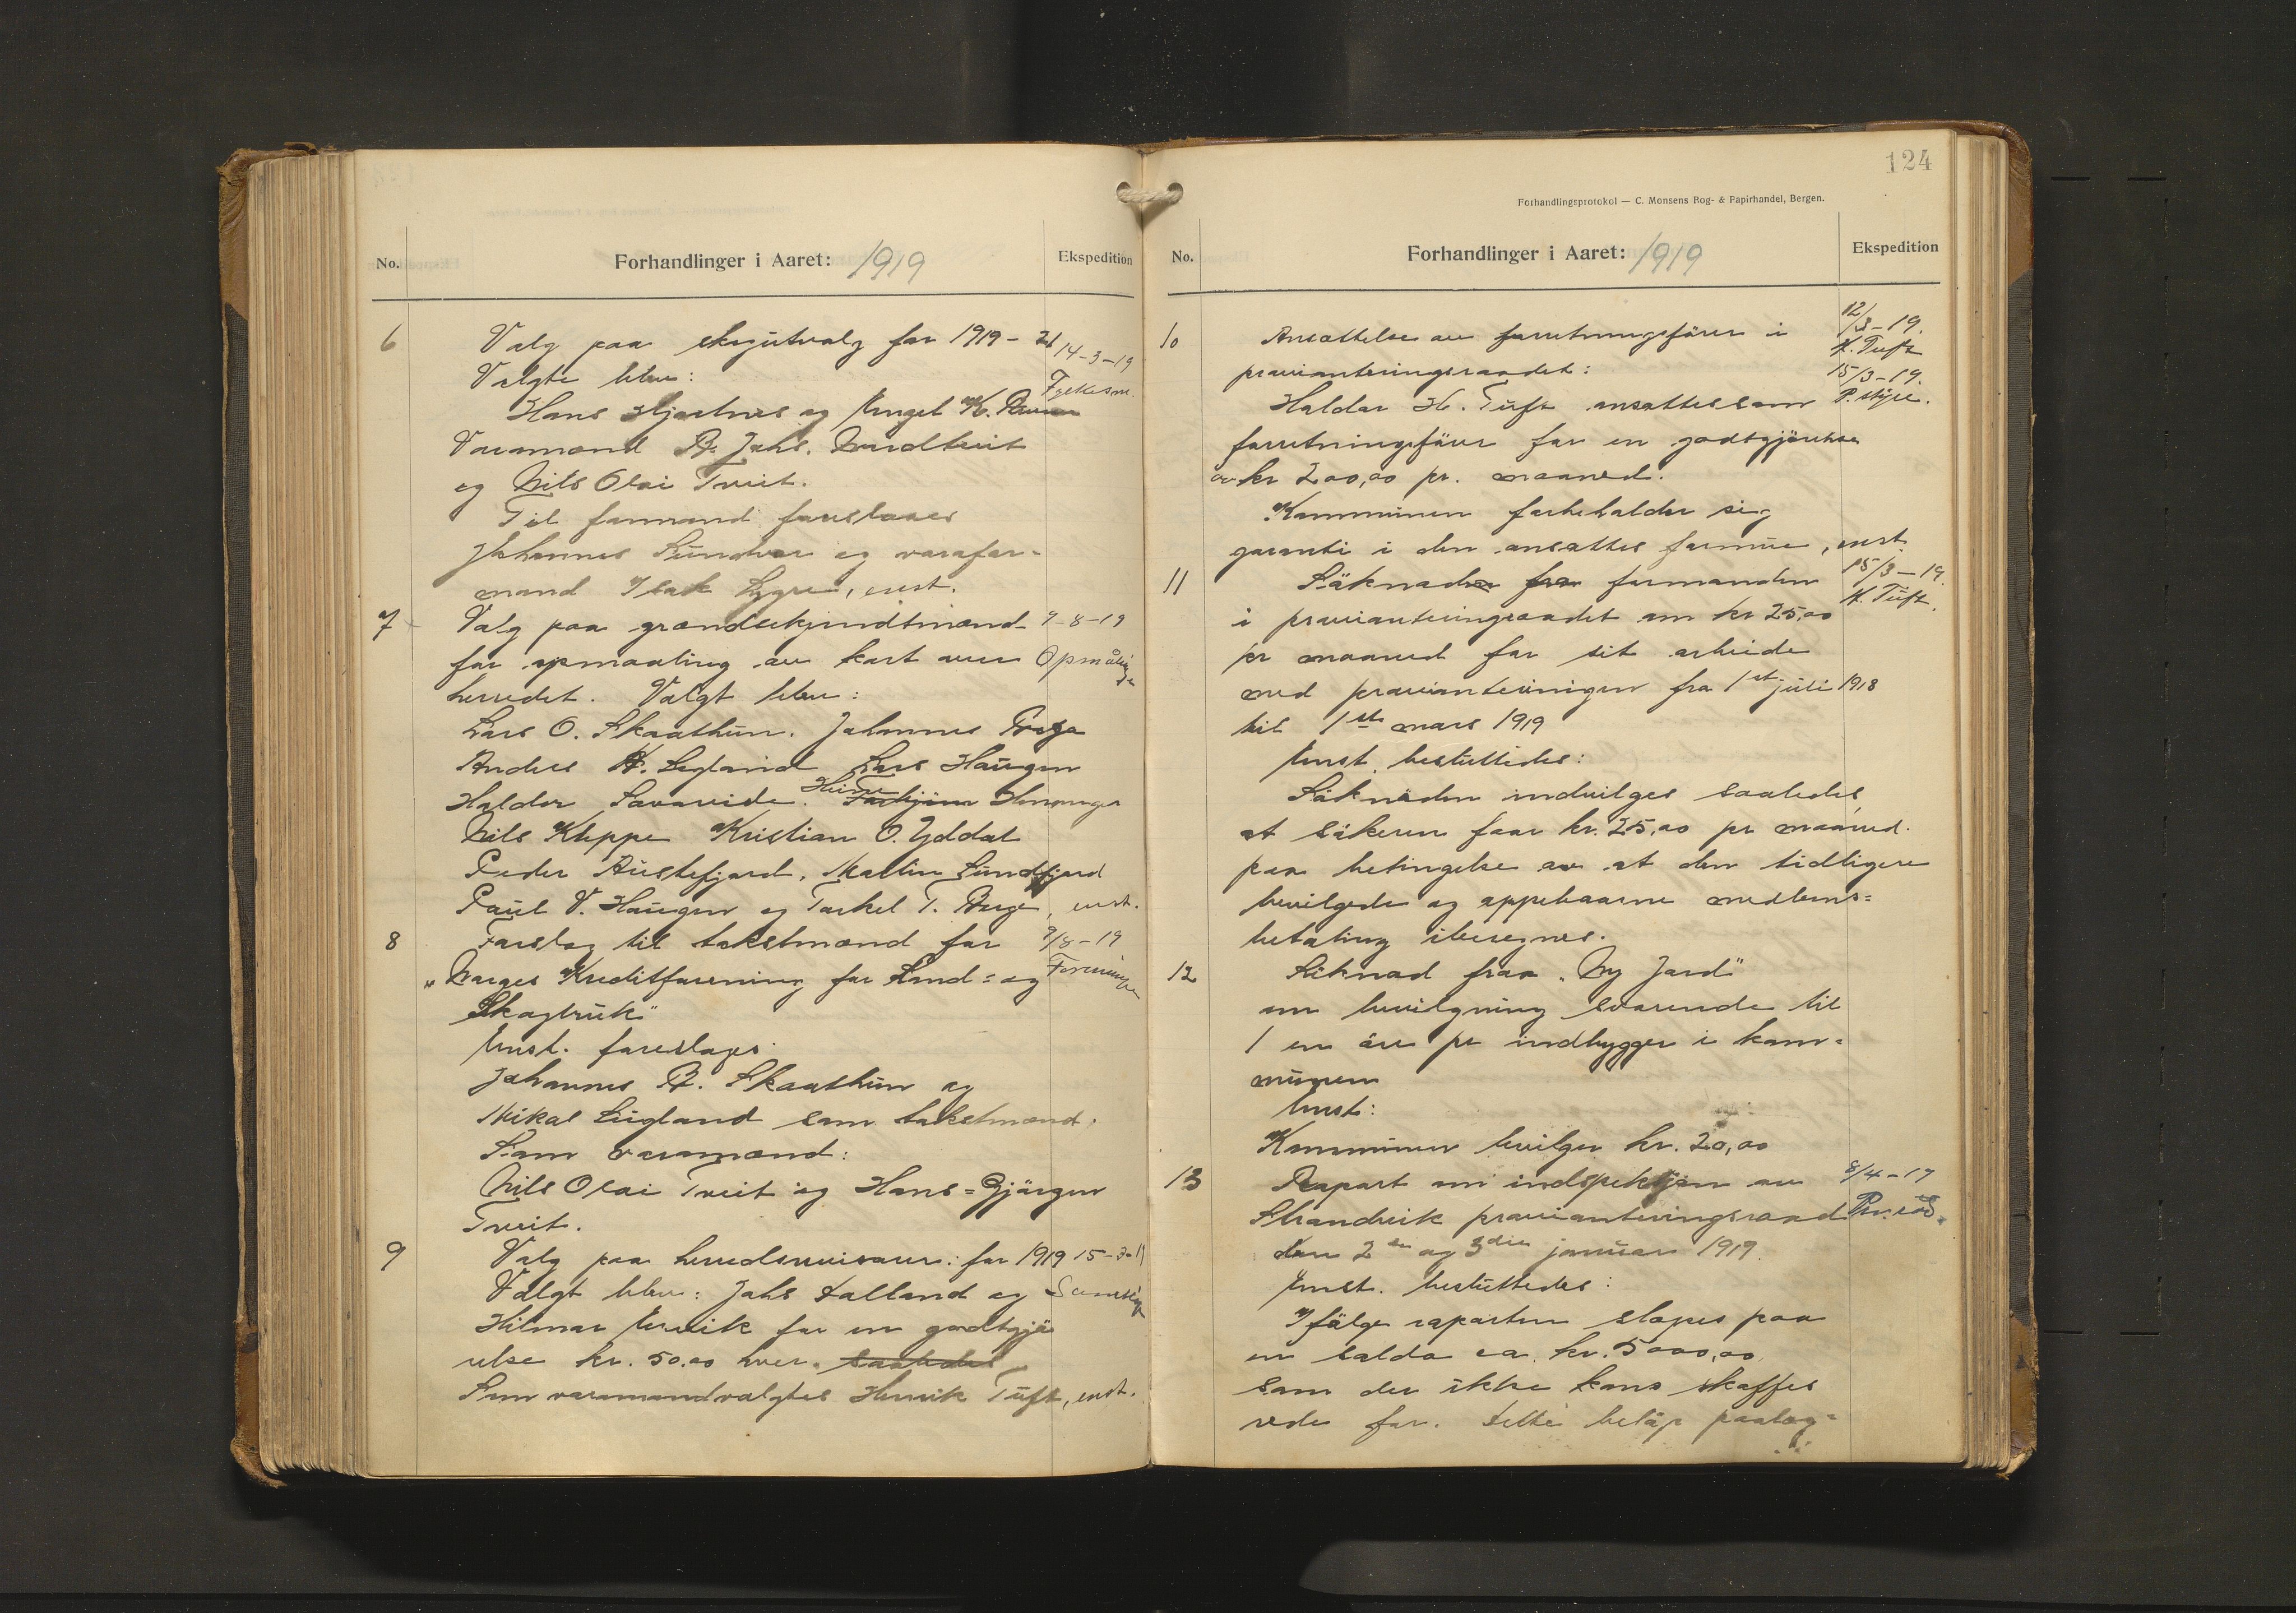 No.
Forhandlinger i Aaret: 1919
Ekspedition
6 Valg paa skjutvalg for 1919 - 21 14-3-19
Valgte blev: Fylkesm.
Hans Hjartnes og Engel K.
Varamænd B. Johs. Nordtveit
og Nils Olai Tveit.
Til formand foreslaaes
Johannes Sundvor og varafor-
mand Isak Lygre, enst.
7 Valg paa grændsekjendtmænd 9-8-19
for opmaaling av kart over Opmålingen
herredet. Valgt blev:
Lars O. Skaathun. Johannes
Anders K. Legland Lars Haugen
Haldor Savareide. Heine Henanger
Nils Kleppe Kristian O. Yddal
Peder Austefjord. Martin Sundfjord
Paul V. Haugen og Torkel T. Berge, enst.
8 Forslag til takstmænd for 9/8-19
"Norges Kreditforening for Land= og Foreningen
Skogbruk"
Enst. foreslages.
Johannes B. Skaathun og
Mikal Lugland som takstmænd.
Som varamænd:
Nils Olai Tveit og Hans=Gjørgen
Tveit.
9 Valg paa herredsrevisorer: for 1919 15-3-19
Valgt blev: Johs Halland og
Hilmar Ervik for en godtgjø
relse kr. 50.00 hver. saaledes
Som varamand valgtes Henrik Tuft, enst.
124
Forhandlingsprotokol — C. Monsens Bog- & Papirhandel, Bergen.
No.
Forhandlinger i Aaret: 1919
Ekspedition
10 Ansættelse av forretningsfører i 12/3-19.
provianteringsraadet: H. Tuft
15/3-19.
Haldor H. Tuft ansættes som P. styre.
forretningsfører for en godtgjørelse
av kr 200,00 pr. maaned.
Kommunen forbeholder sig
garanti i den ansattes formue, enst.
11 Søknad fra formanden 15/3-19.
H. Tuft.
i provianteringsraadet om kr 25,00
pr maaned for sit arbeide
med provianteringen fra 1st juli 1918
til 1ste mars 1919
Enst. besluttedes:
Søknaden indvilges saaledes,
at søkeren faar kr. 25,00 pr maaned.
paa betingelse av at den tidligere
bevilgede og oppebaarne medlems=
betaling iberegnes.
12 Søknad fraa "Ny Jord"
om bevilgning svarende til
1 en øre pr indbygger i kom=
munen
Enst:
Kommunen bevilger kr. 20,00
13 Rapport om indspektjon av 8/4-19
Strandvik provianteringsraad Prov.råd.
den 2den og 3die januar 1919.
Enst. besluttedes:
Ifølge raporten stopes paa
en saldo ca. kr. 5000,00
som der ikke kans skaffes
rede for. Dette beløp paalæg=